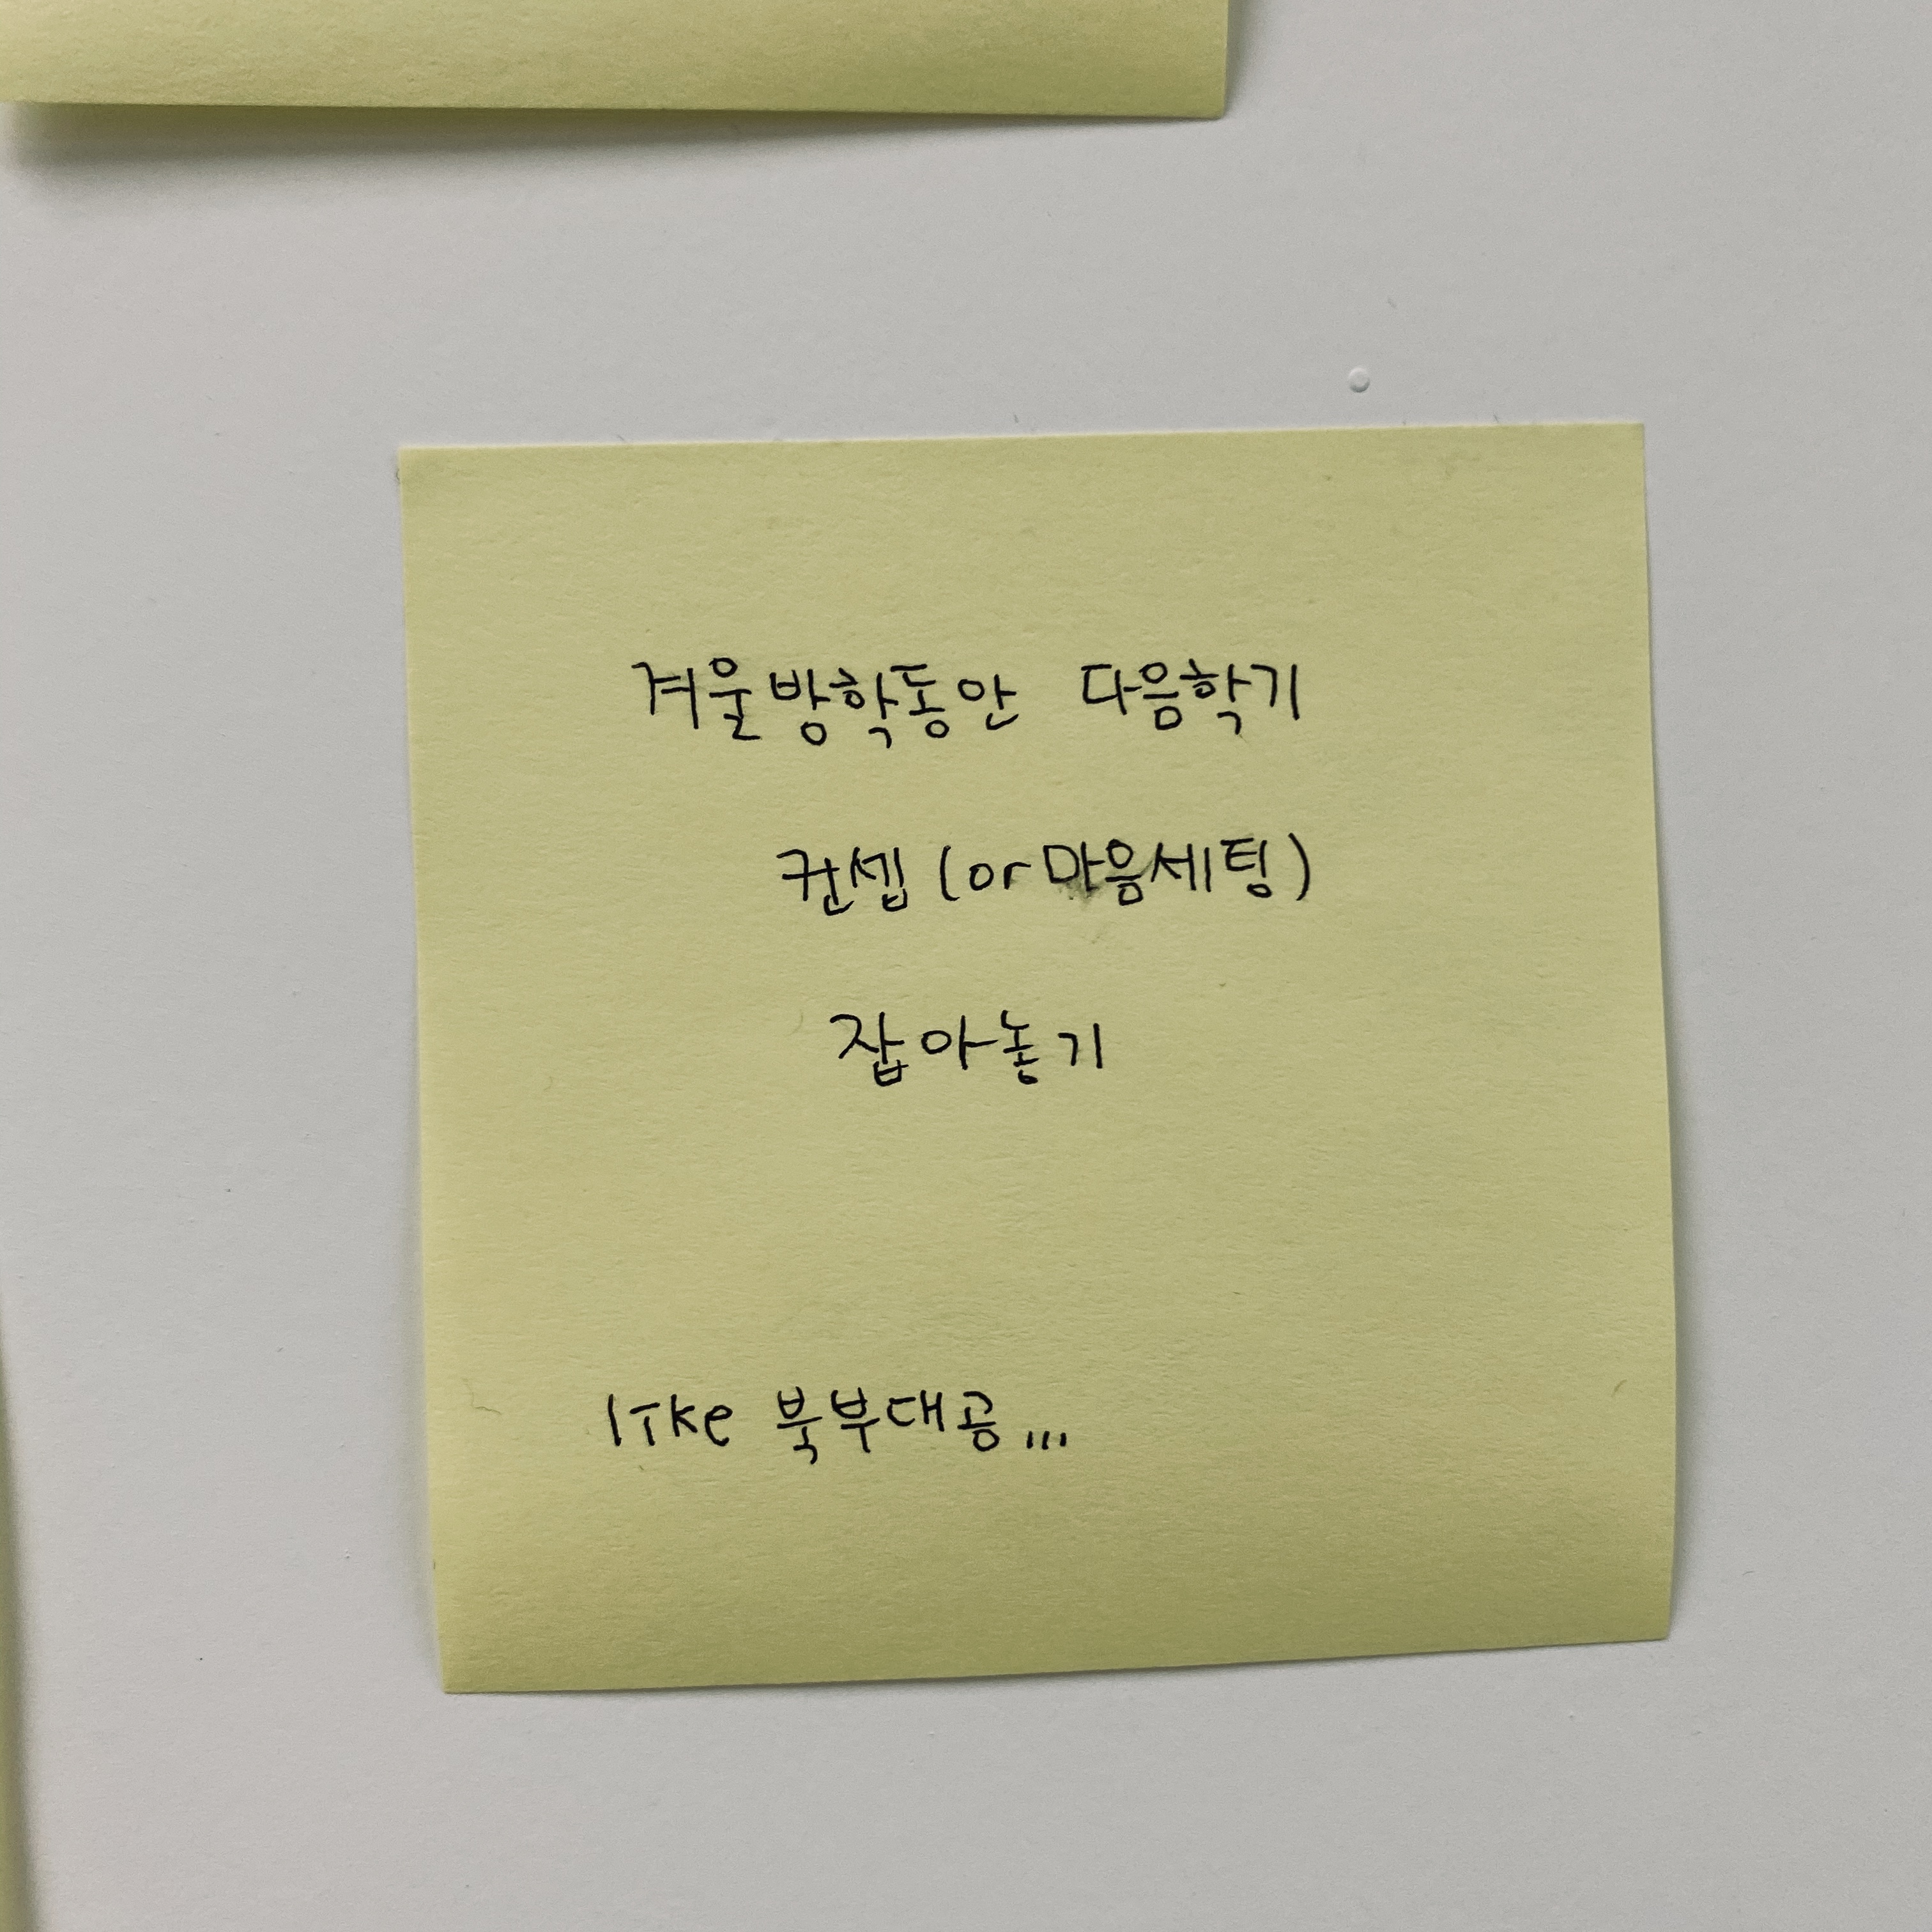 겨울방학동안 다음학기
컨셉 (or 마음세팅)
잡아놓기
like 북부대공...